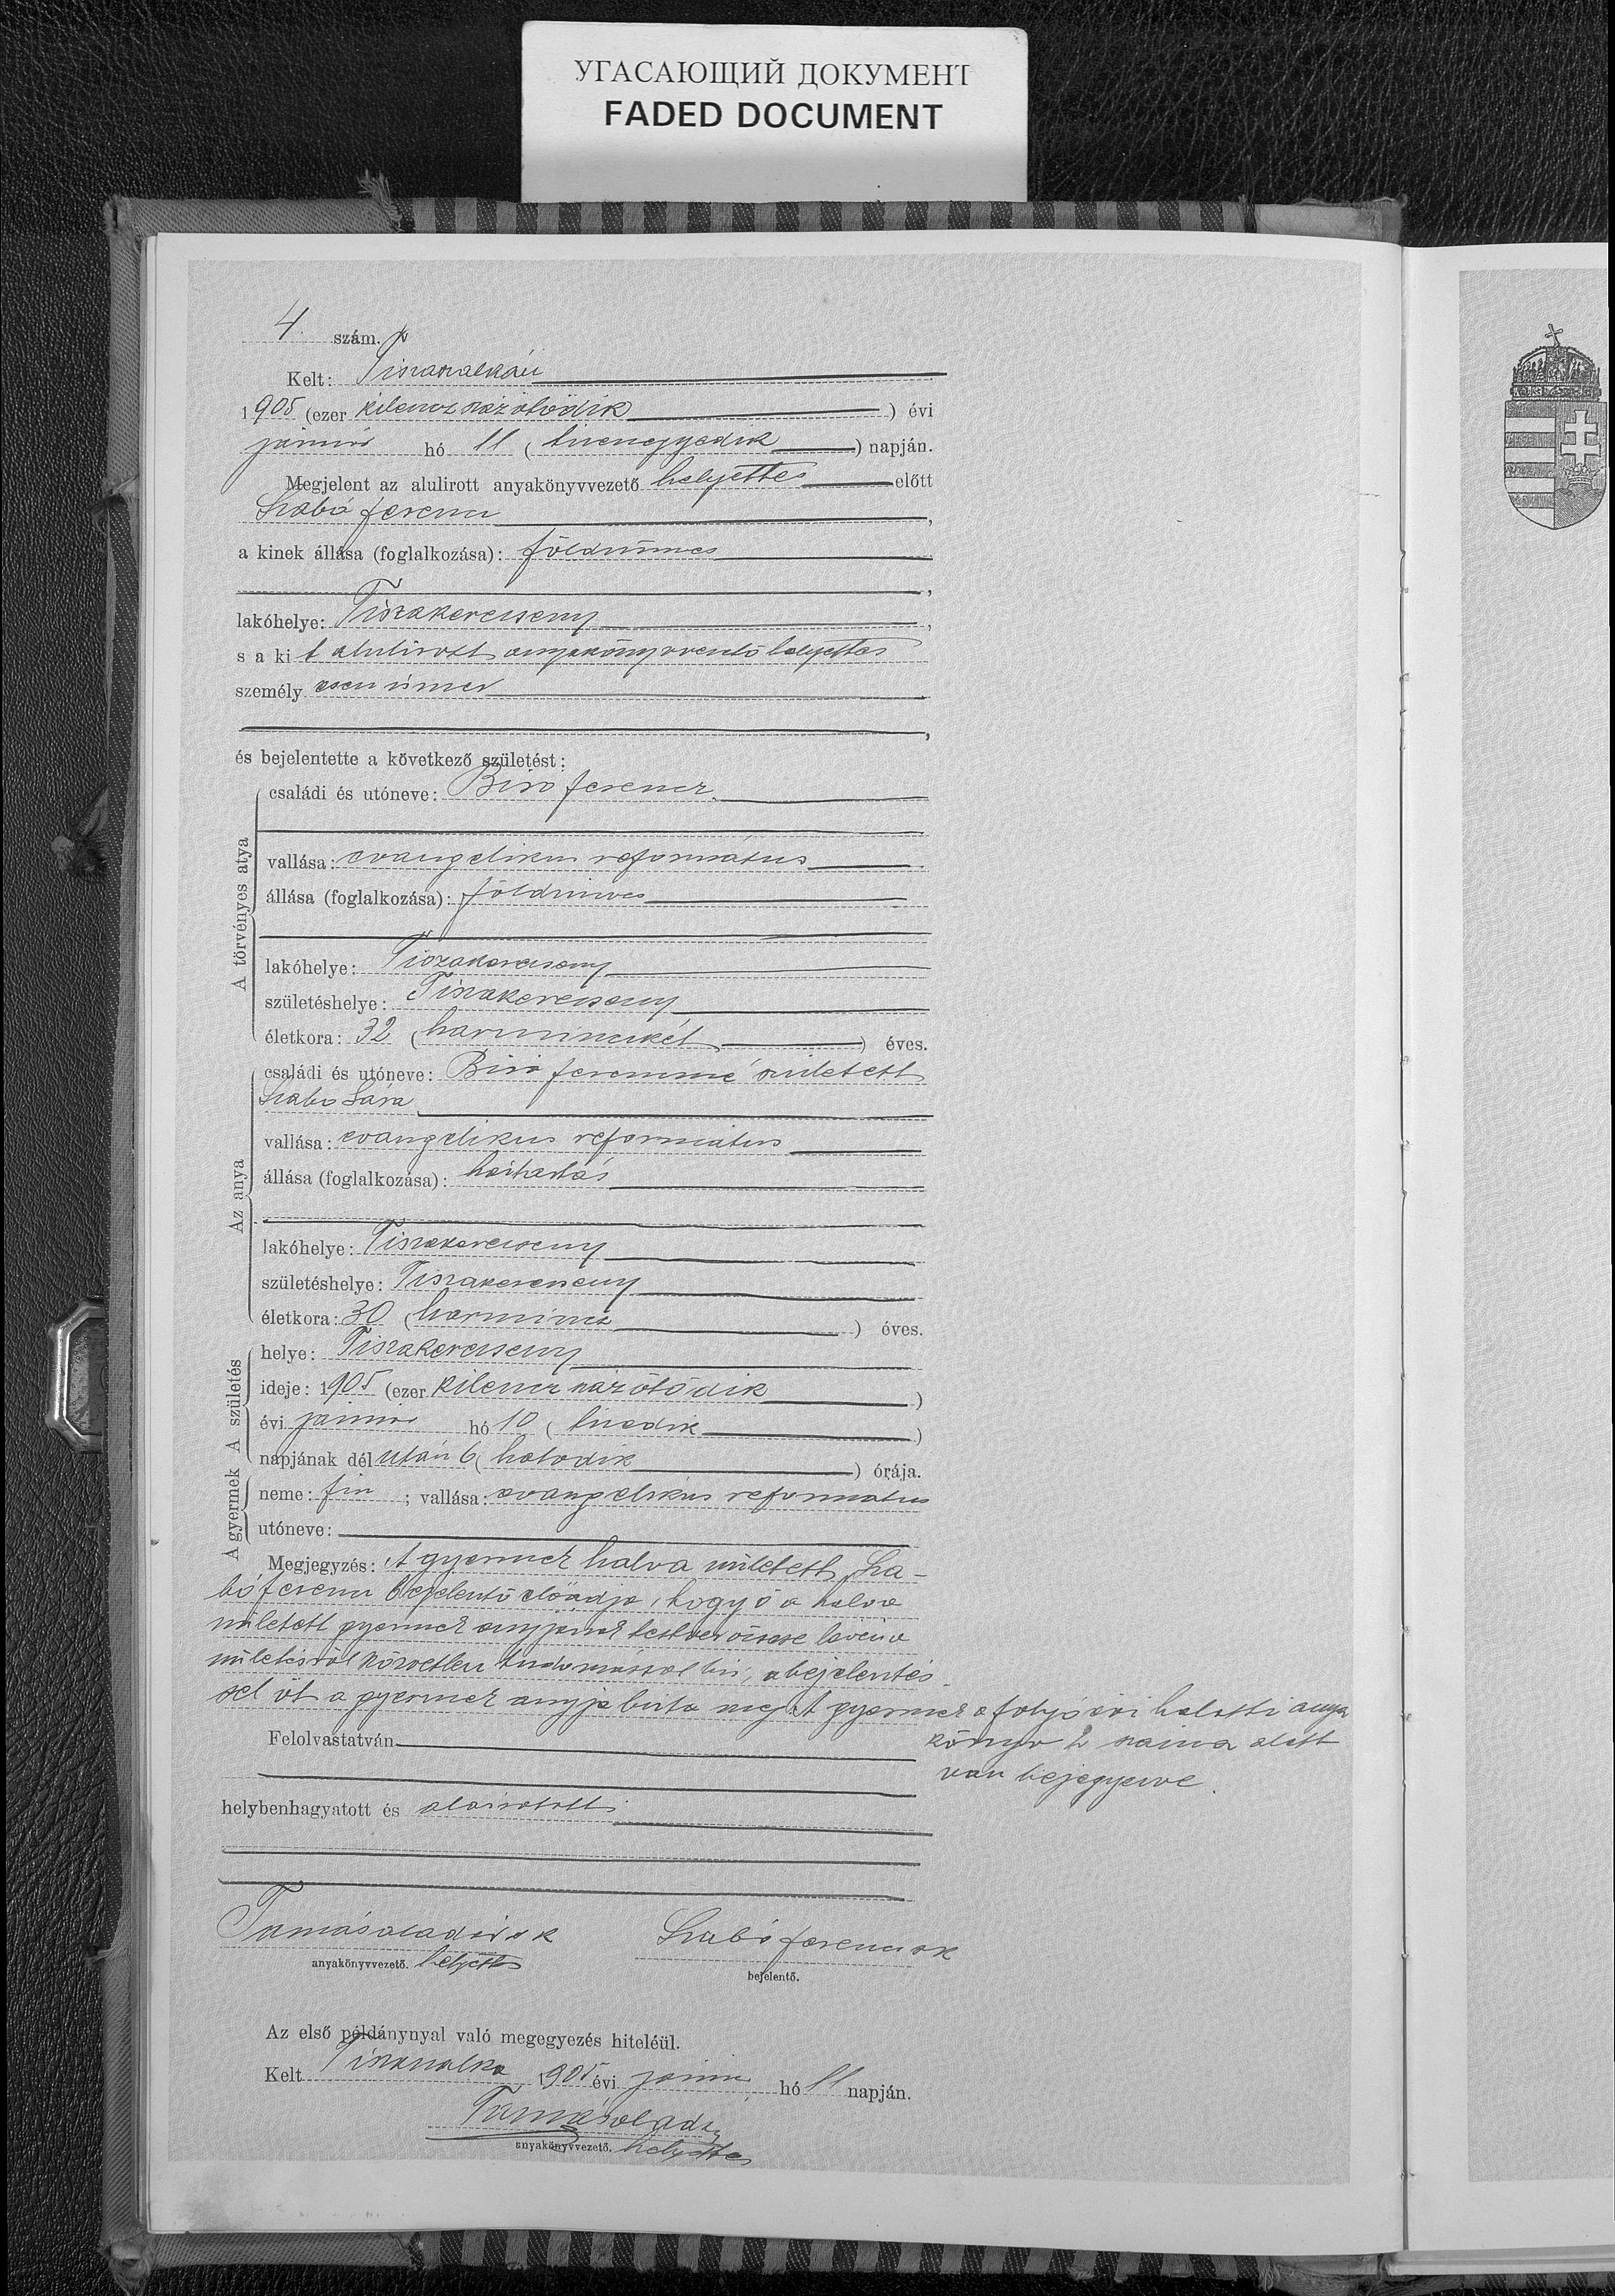 УГАСАЮЩИЙ ДОКУМЕНТ
FADED DOCUMENT
4. szám.
Kelt: Tiszaszalkán
1905 (ezer kilencszázötödik) évi
január hó 11 (tizenegyedik) napján.
Megjelent az alulirott anyakönyvvezető helyettes előtt
Szabó Ferencz,
a kinek állása (foglalkozása): földmüves
lakóhelye: Tiszakerecseny,
s a kit alulirott anyakönyvvezető helyettes
személyesen ismer
és bejelentette a következő születést:
A törvényes atya
családi és utóneve: Biro Ferencz
vallása: evangelikus református
állása (foglalkozása): földmüves
lakóhelye: Tiszakerecseny
születéshelye: Tiszakerecseny
életkora: 32 (harminczkét) éves.
Az anya
családi és utóneve: Biró Ferenczné született
Szabo Sára
vallása: evangelikus református
állása (foglalkozása): háztartás
lakóhelye: Tiszakerecseny
születéshelye: Tiszakerecseny
életkora: 30 (harmincz) éves.
A születés
helye: Tiszakerecseny
ideje: 1905 (ezer kilenczszázötödik)
évi január hó 10 (tizedik)
napjának délután 6 (hatodik) órája.
A gyermek
neme: fiu; vallása: evangelikus reformatus
utóneve:
Megjegyzés: A gyermek halva született, Sza-
bó Ferencz bejelentő előadja, hogy ő a halva
született gyermek anyjának testvér öcscse lévén a
születésről közvetlen tudomással bir, a bejelentés-
sel őt a gyermek anyja bizta meg. A gyermek a folyó évi halotti anya
könyv 2 száma alatt
van bejegyezve.
Felolvastatván
helybenhagyatott és aláiratott.
Tamás Aladár sk Szabó Ferencz sk
anyakönyvvezető. helyettes bejelentő.
Az első példánynyal való megegyezés hiteléül.
Kelt Tiszaszalka 1905 évi január hó 11 napján.
Tamás Aladár
anyakönyvvezető. helyettes